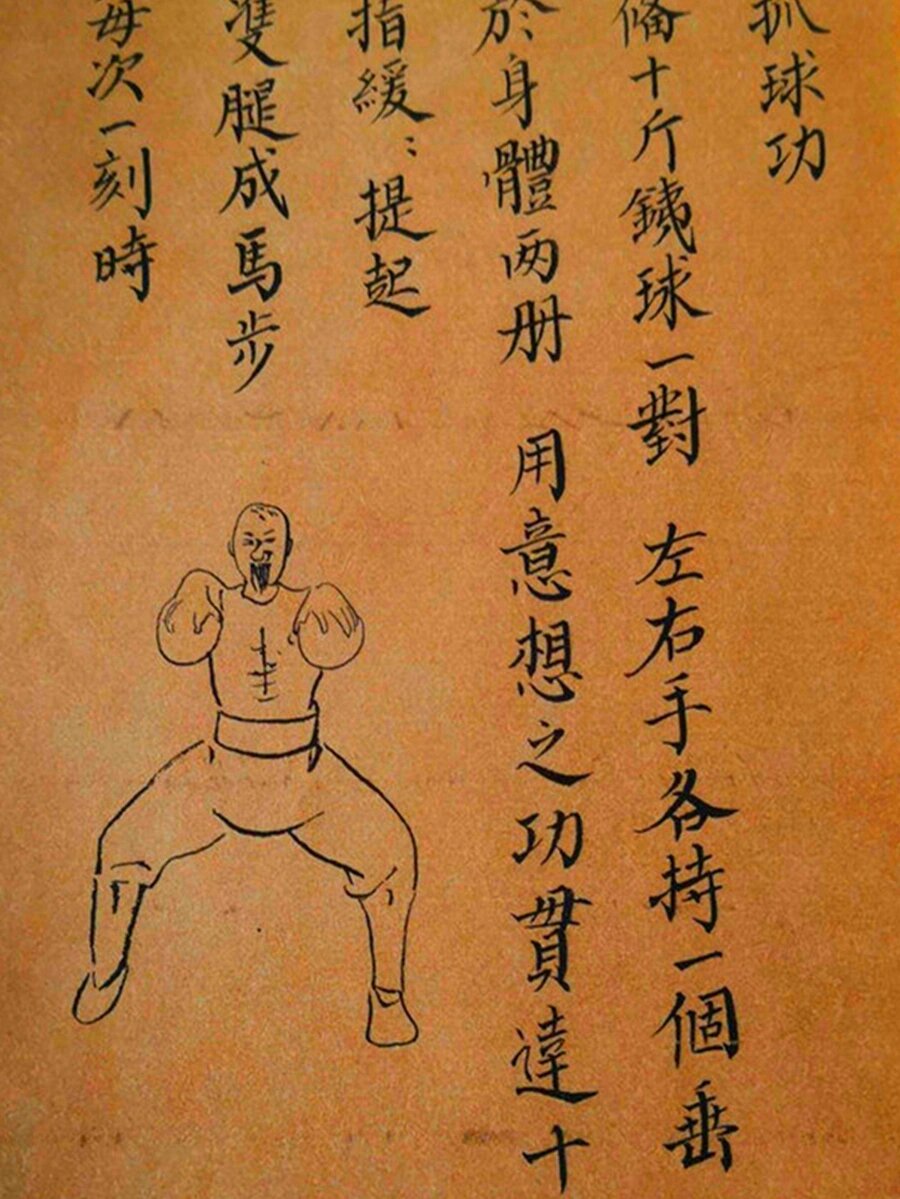 抓球功
備十斤銕球一對 左右手各持一個垂
於身體两册 用意想之功貫達十
指緩︰提起
雙腿成馬步
每次一刻時